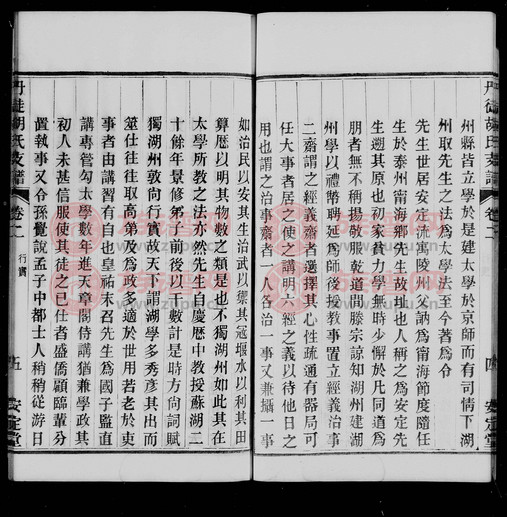 州縣皆立學於是建太學於京師而有司情下湖
州取先生之法爲太學法至今著爲令
先生世居安定流寓陵州父訥爲甯海節度隨任
生於泰州甯海鄉先生故址也人稱之爲安定先
生朔其原也初家貧力學無時少懈於凡同道爲
朋者無不稱揚敬服乾道間滕宗諒知湖州建湖
州學以禮幣聘延爲師後授教事置立經義治事
二齋謂之經義齋者選擇其心性疏通有器局可
任大事者居之使之講明六經之義以待他日之
用也謂之治事齋者一人各治一事又兼攝一事
丹徒胡氏支譜
卷二
四
安定堂
如治民以安其生治武以禦其寇堰水以利其田
算歷以明其物數之類是也不獨湖州如此其在
太學所教之法亦然先生自慶歷中教授蘇湖二
十餘年景修弟子前後以千數計是時方尚詞賦
獨湖州敦尚行實故天下謂湖學多秀彥其出而
筮仕往往取高第及爲政多適於世用若老於吏
事者由講習有自也皇祐末召先生爲國子監直
講專管勾太學數年進天章閣侍講猶兼學政其
初人未甚信服使其徒之已仕者盛僑顧臨輩分
置執事又令孫覺說孟子中都士人稍稍從游日
丹徒胡氏支譜
卷二
行實
五
安定堂